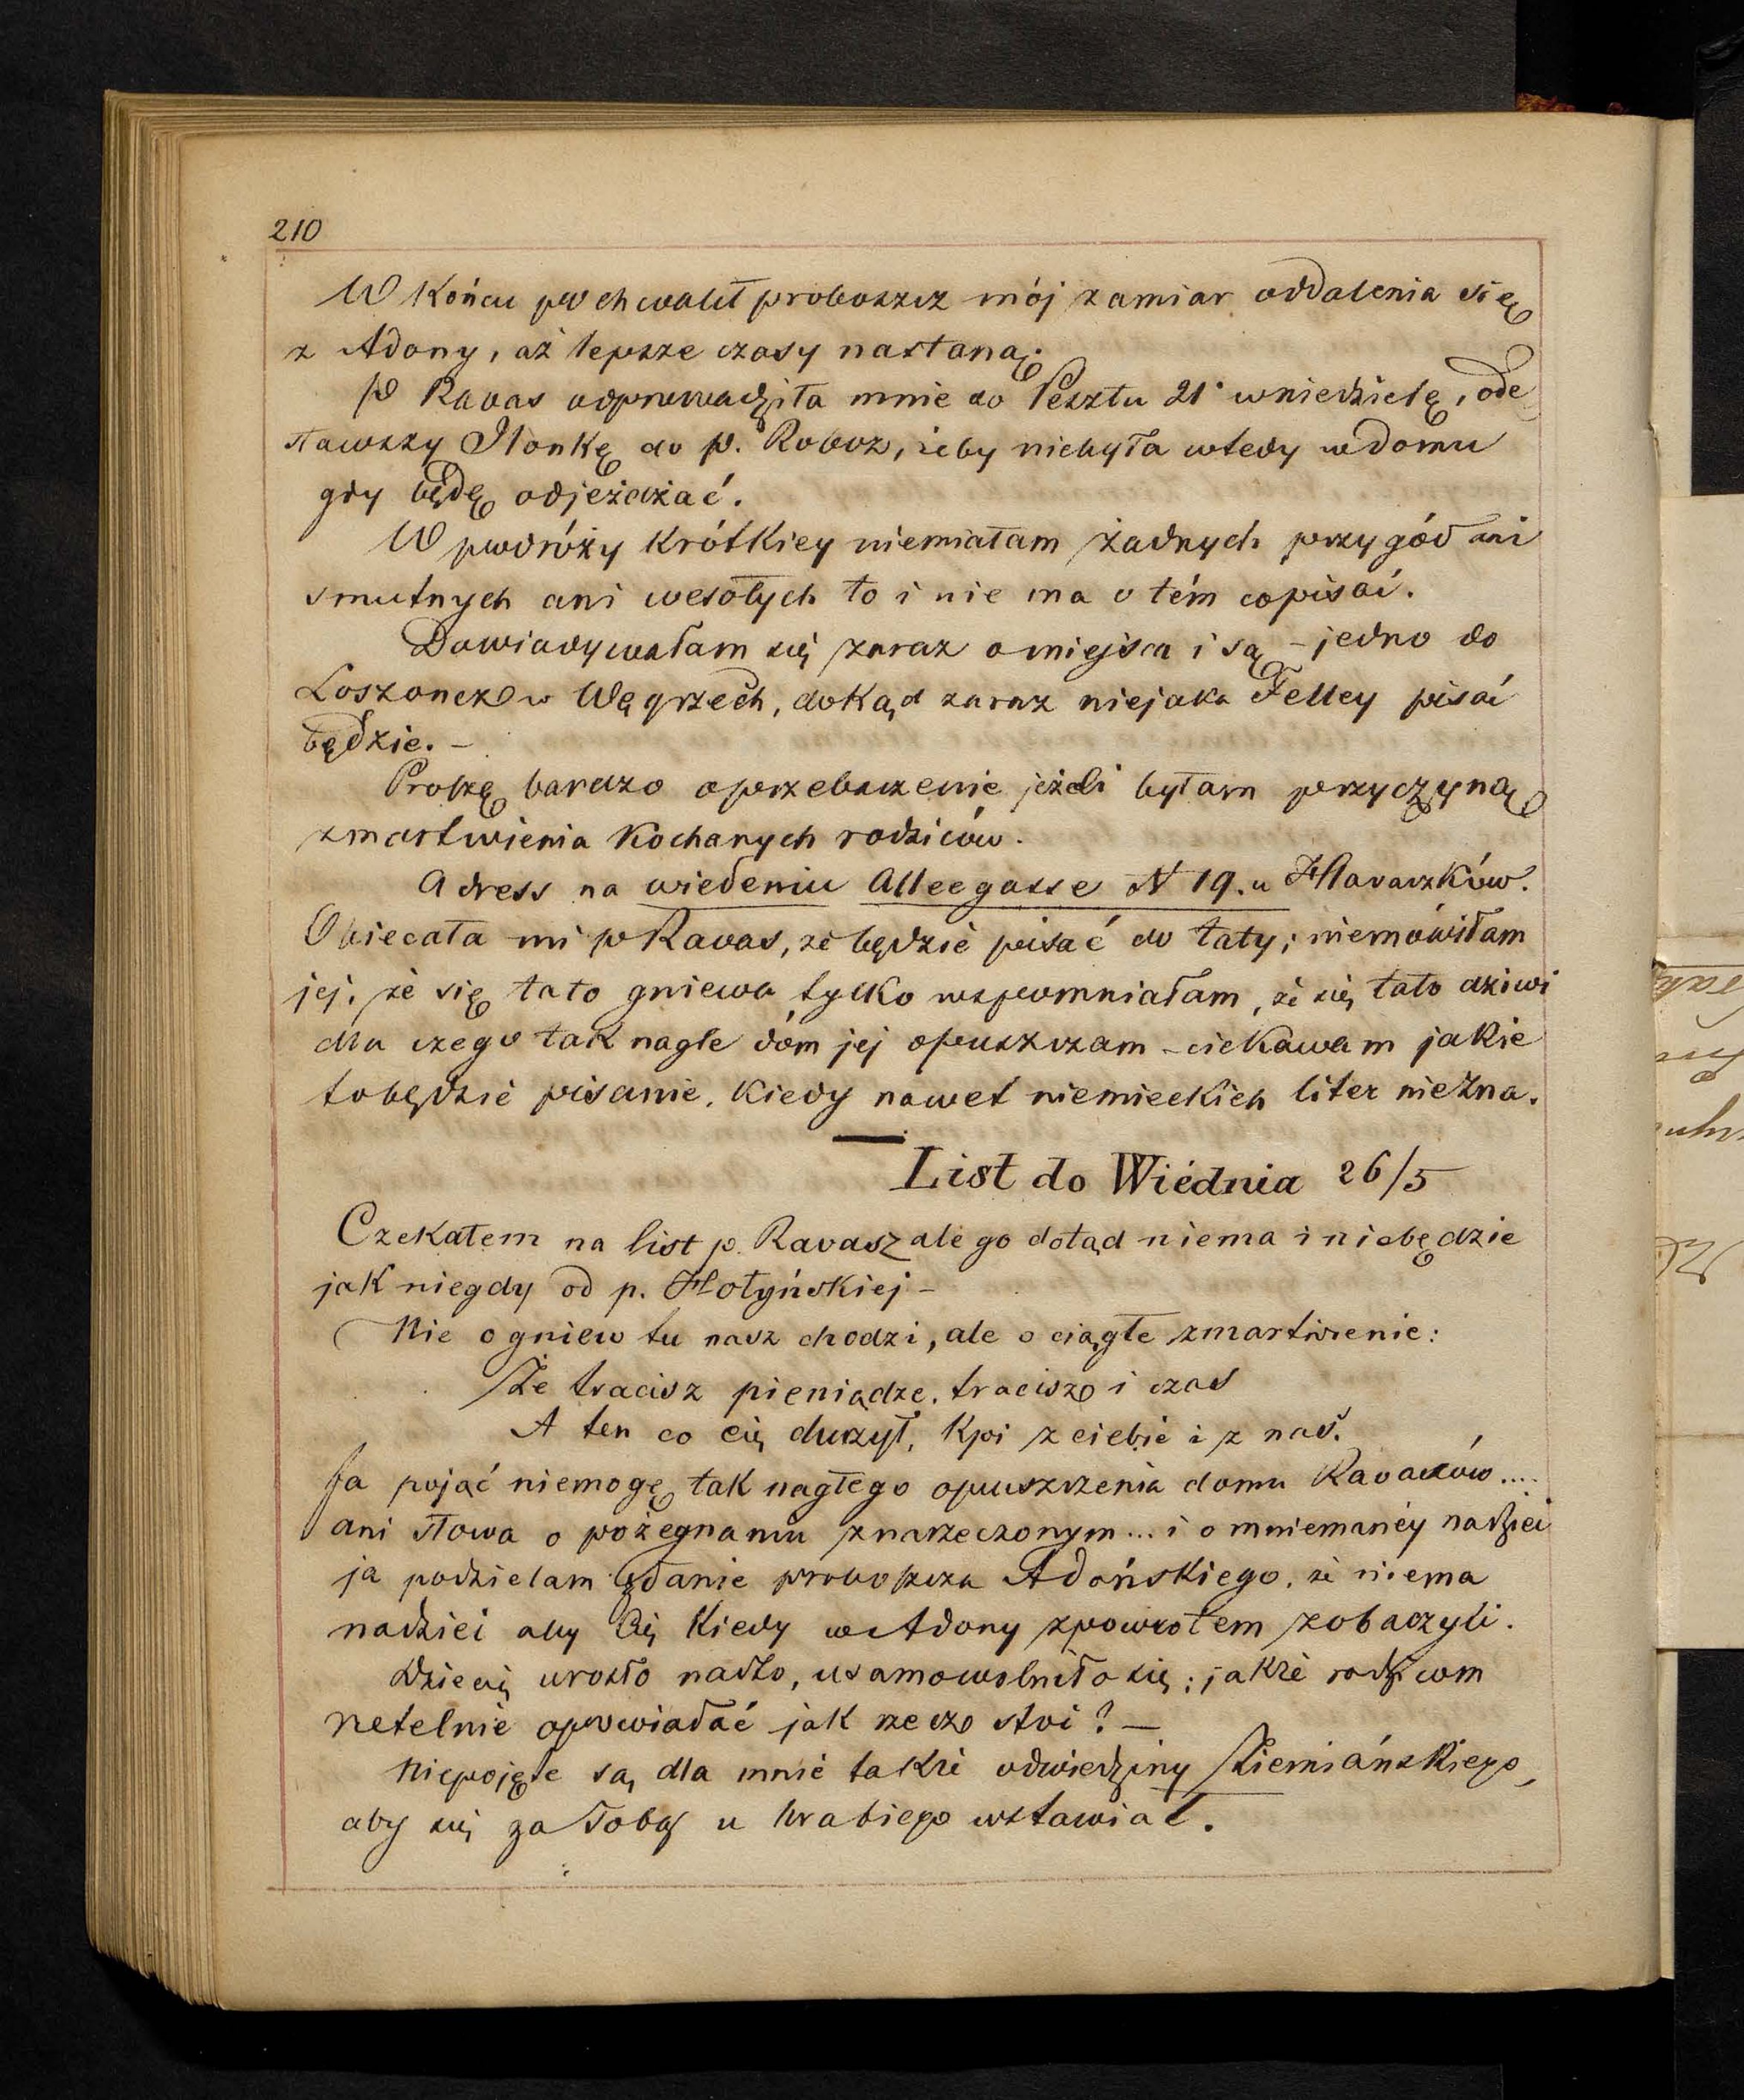 210
W Końcu pochwalił proboszcz mój zamiar oddalenia się
z Adony, aż lepsze czasy nastaną.
P Ravas odprowadziła mnie do Pesztu 21 wniedzielę, ode
sławszy Ilonkę do p. Roboz, żeby niebyła wtedy w domu
gdy będę odjeżdżać.
W podróży krótkiey niemiałam żadnych przygód ani
smutnych ani wesołych to i nie ma o tém copisać.
Dowiadywałam się zaraz o miejsca i są – jedno do
Loszoncz w Węgrzech, dokąd zaraz niejaka Felley pisać
będzie. –
Proszę bardzo oprzebaczenie jeżeli byłam przyczyną
zmartwienia Kochanych rodziców.
Adress na wiedeniu Alleegasse N 19. u Hlavaczków.
Obiecała mi p Ravas, że będzie pisać do taty; niemówiłam
jej, że się tato gniewa tylko wspomniałam, że się tato dziwi
dla czego tak nagle dóm jej opuszczam – ciekawam jakie
tobędzie pisanie, Kiedy nawet niemieckich liter niezna.
List do Wiédnia 26/5
Czekałem na list p. Ravasz ale go dotąd niema i niebędzie
jak niegdy od p. Hołyńskiej –
Nie o gniew tu nasz chodzi, ale o ciągłe zmartwienie:
Że tracisz pieniądze, tracisz i czas
A ten co cię durzył, Kpi z ciebie i z nas.
Ja pojąć niemogę tak nagłego opuszczenia domu Ravaszów....
ani słowa o pożegnaniu znarzeczonym... i o mniemanéy nadziei
ja podzielam zdanie proboszcza Adońskiego, że niema
nadziei aby Cię Kiedy w Adony zpowrotem zobaczyli.
Dziecię urosło nadto, usamowolniło się; jakże rodzicom
rzetelnie opowiadać jak rzecz stoi? –
Niepojęte są dla mnie także odwiedziny Ziemiańskiego,
aby się za Tobą u hrabiego wstawiał.